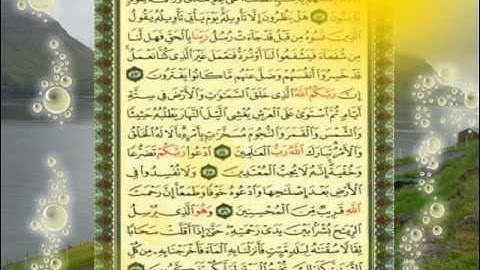 يُؤْمِنُونَ ٥٢ هَلْ يَنظُرُونَ إِلَّا تَأْوِيلَهُۥ يَوْمَ يَأْتِى تَأْوِيلُهُۥ يَقُولُ
ٱلَّذِينَ نَسُوهُ مِن قَبْلُ قَدْ جَآءَتْ رُسُلُ رَبِّنَا بِٱلْحَقِّ فَهَل لَّنَا
مِن شُفَعَآءَ فَيَشْفَعُوا۟ لَنَآ أَوْ نُرَدُّ فَنَعْمَلَ غَيْرَ ٱلَّذِى كُنَّا نَعْمَلُ
قَدْ خَسِرُوٓا۟ أَنفُسَهُمْ وَضَلَّ عَنْهُم مَّا كَانُوا۟ يَفْتَرُونَ ٥٣
إِنَّ رَبَّكُمُ ٱللَّهُ ٱلَّذِى خَلَقَ ٱلسَّمَٰوَٰتِ وَٱلْأَرْضَ فِى سِتَّةِ
أَيَّامٍ ثُمَّ ٱسْتَوَىٰ عَلَى ٱلْعَرْشِ يُغْشِى ٱلَّيْلَ ٱلنَّهَارَ يَطْلُبُهُۥ حَثِيثًا
وَٱلشَّمْسَ وَٱلْقَمَرَ وَٱلنُّجُومَ مُسَخَّرَٰتٍۭ بِأَمْرِهِۦٓ أَلَا لَهُ ٱلْخَلْقُ
وَٱلْأَمْرُ تَبَارَكَ ٱللَّهُ رَبُّ ٱلْعَٰلَمِينَ ٥٤ ٱدْعُوا۟ رَبَّكُمْ تَضَرُّعًا
وَخُفْيَةً إِنَّهُۥ لَا يُحِبُّ ٱلْمُعْتَدِينَ ٥٥ وَلَا تُفْسِدُوا۟ فِى
ٱلْأَرْضِ بَعْدَ إِصْلَٰحِهَا وَٱدْعُوهُ خَوْفًا وَطَمَعًا إِنَّ رَحْمَتَ
ٱللَّهِ قَرِيبٌ مِّنَ ٱلْمُحْسِنِينَ ٥٦ وَهُوَ ٱلَّذِى يُرْسِلُ
ٱلرِّيَٰحَ بُشْرًۢا بَيْنَ يَدَىْ رَحْمَتِهِۦ حَتَّىٰٓ إِذَآ أَقَلَّتْ سَحَابًا
ثِقَالًا سُقْنَٰهُ لِبَلَدٍ مَّيِّتٍ فَأَنزَلْنَا بِهِ ٱلْمَآءَ فَأَخْرَجْنَا بِهِۦ مِن كُلِّ